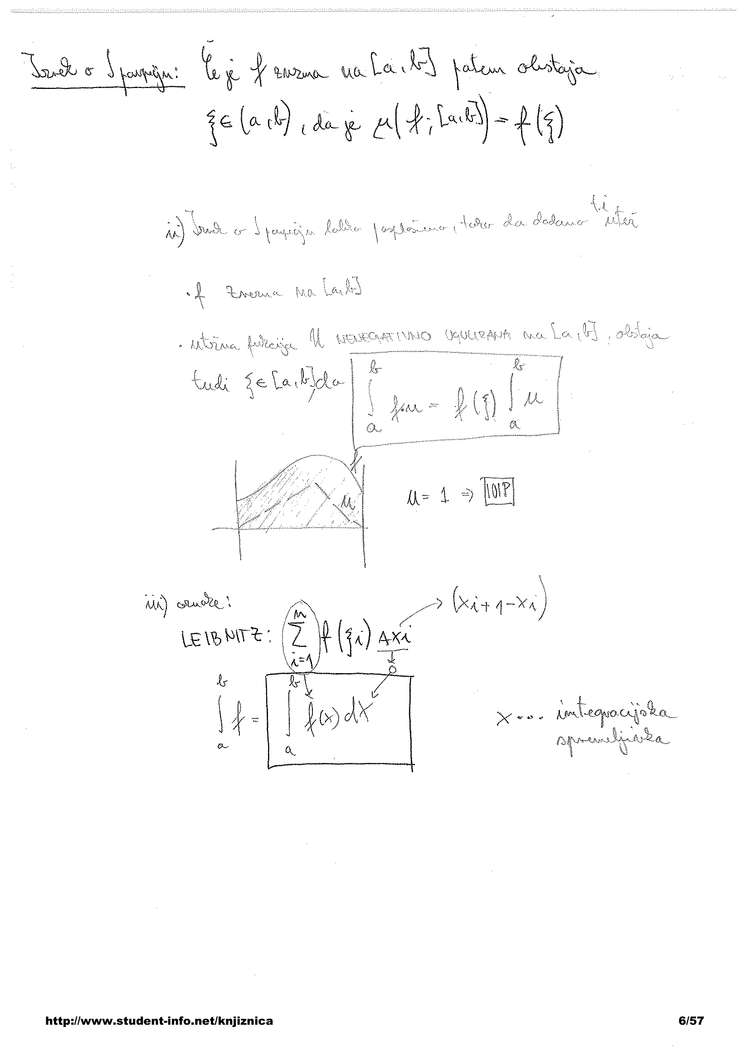 Izrek o ∫ povprečju: Če je f zvezna na [a,b] potem obstaja
ξ ∈ (a,b), da je μ(f; [a,b]) = f(ξ)
ii) Izrek o ∫ povprečju lahko posplošimo, tako da dodamo t.i. utež
· f zvezna na [a,b]
· utežna funkcija u NENEGATIVNO na [a,b], obstaja
tudi ξ ∈ [a,b], da ∫_a^b f·u = f(ξ) ∫_a^b u
f
u
u = 1 ⇒ IOIP
iii) oznake:
LEIBNITZ: Σ_{i=1}^n f(ξi) Δxi → (xi+1-xi)
0
∫_a^b f = ∫_a^b f(x) dx
x ... integracijska
spremeljivka
http://www.student-info.net/knjiznica 6/57